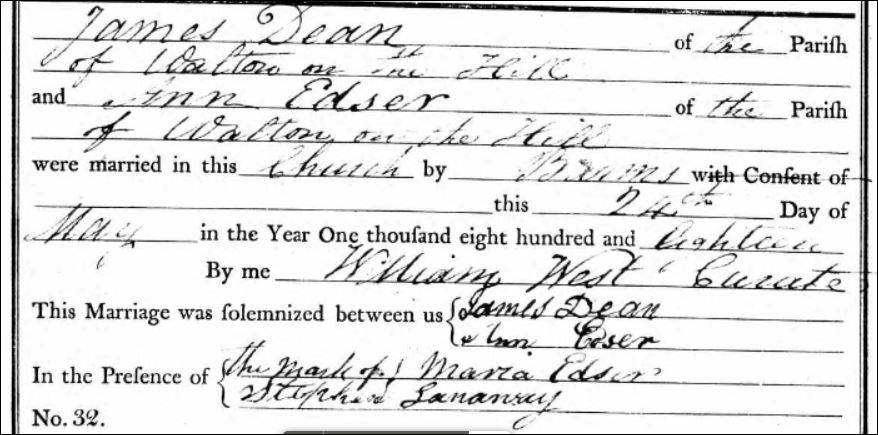 James Dean of the Pariſh
of Walton on the Hill
and Ann Edser of the Pariſh
of Walton on the Hill
were married in this Church by Banns with Conſent of
this 24th Day of
May in the Year One thouſand eight hundred and Eighteen
By me William West Curate
This Marriage was ſolemnized between us { James Dean
Ann Edser
In the Preſence of { the Mark of Maria Edser
Stephen
No. 32.